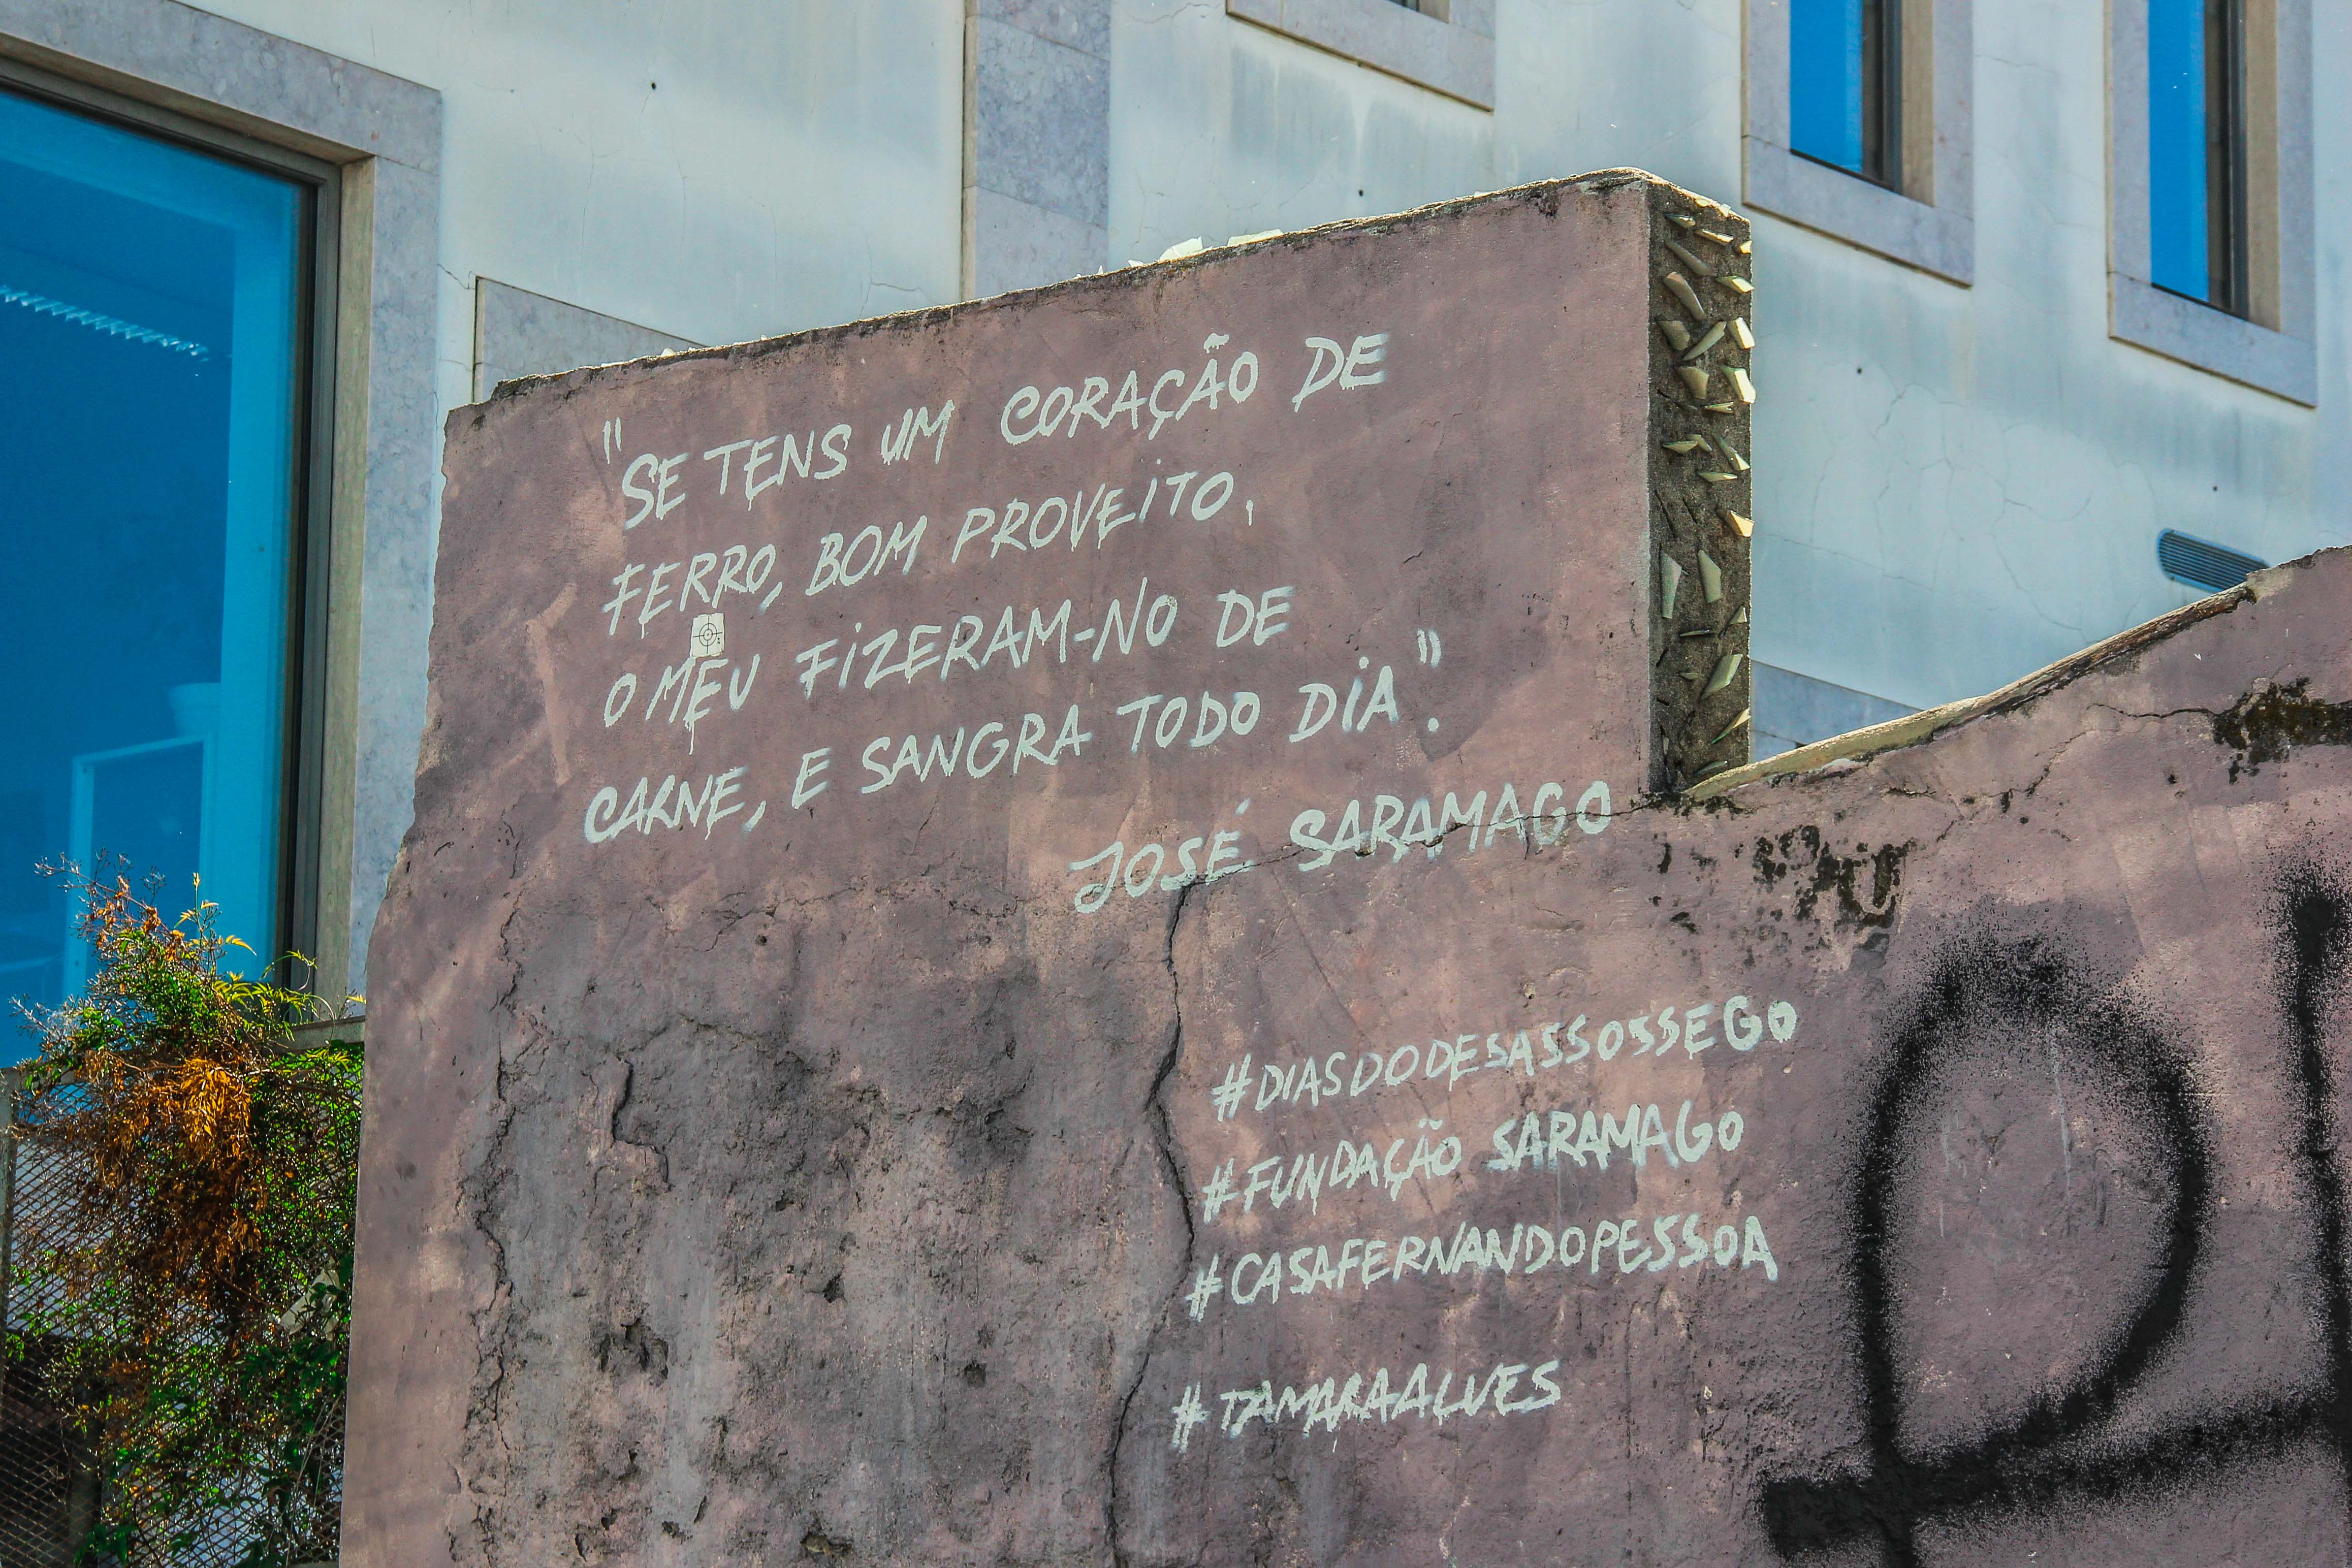 "SE TENS UM CORAÇÃO DE
FERRO, BOM PROVEITO.
O MEU FIZERAM-NO DE
CARNE, E SANGRA TODO DIA".
JOSÉ SARAMAGO
#DIASDODESASSOSSEGO
#FUNDAÇÃO SARAMAGO
#CASAFERNANDOPESSOA
#TAMARAALVES